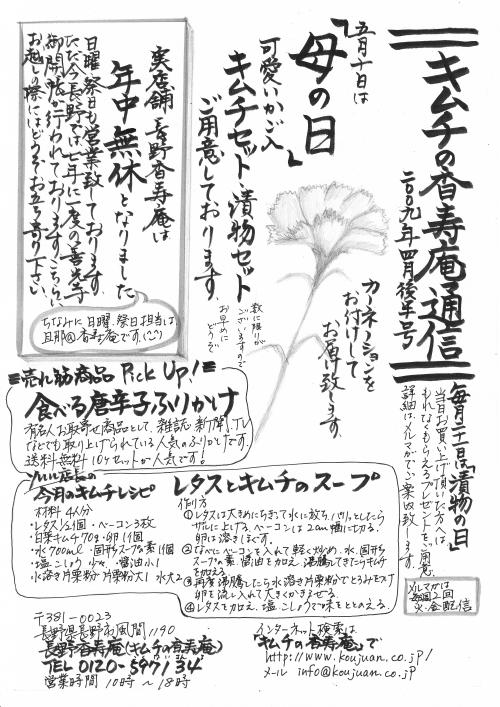 キムチの香寿庵通信
二〇〇九年四月後半号
毎月二十一日は「漬物の日」
当日お買い上げ頂いた方へは
もれなくもらえるプレゼントをご用意
詳細は、メルマガでご案内致します。
メルマガは
毎週2回
火・金配信
五月十日は
「母の日」
可愛いかご入
キムチセット・漬物セット
ご用意しております。
数に限りが
ございますので
お早めに
どうぞ
カーネーションを
お付けして
お届け致します。
実店舗 長野香寿庵は
年中無休となりました
日曜・祭日も営業致しております。
ただ今、長野では七年に一度の善光寺
御開帳が行われております。こちらに
お越しの際にはどうぞお立ち寄り下さい。
ちなみに日曜、祭日担当は、
旦那@香寿庵です(^^)
売れ筋商品 Pick Up!
食べる唐辛子ふりかけ
有名人お取寄せ商品として、雑誌・新聞、TV
などでも取り上げられている人気のふりかけです。
送料無料 10ヶセットが人気です!
ソルル店長の
今月のキムチレシピ
レタスとキムチのスープ
材料 4人分
・レタス1/2個・ベーコン3枚
・白菜キムチ70g・卵1個
・水700ml・固形スープの素1個
・塩、こしょう 少々、醤油小1
水溶き片栗粉 片栗粉大1 水大2
作り方
①レタスは大きめにちぎって水に放ち、パリッとしたら
ザルに上げる。ベーコンは2cm幅に切る。
卵は溶きほぐす。
②なべにベーコンを入れて軽く炒め、水、固形ス
ープの素、醤油を加え、沸騰してきたらキムチ
を加える。
③再度沸騰したら水溶き片栗粉でとろみをつけ
卵を流し入れて大きくかきまぜる。
④レタスを加え、塩、こしょうで味をととのえる。
〒381-0023
長野県長野市風間1190
長野香寿庵(キムチの香寿庵)
TEL 0120-5971 34
営業時間 10時～18時
インターネット検索は
「キムチの香寿庵」で
http://www.koujuan.co.jp/
メール info@koujuan.co.jp